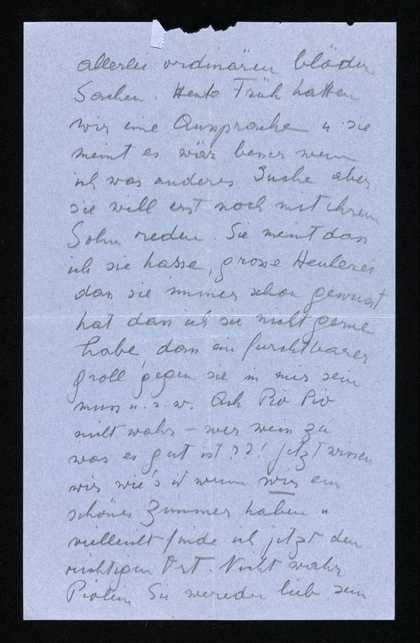 allerlei ordinären blöden
Sachen. Heute Früh hatten
wir eine Aussprache u. sie
meint es wär besser wenn
ich was anderes Suche aber
sie will erst noch mit ihrem
Sohn reden. Sie meint dass
ich sie hasse, grosse Heulerei
dass sie immer schon gewusst
hat dass ich sie nicht gerne
habe, dass ein furchtbarer
groll gegen sie in mir sein
muss u. s. w. Ach Pio Pio
nicht wahr – wer weiss zu
was es gut ist??! jetzt wissen
wir wie's ist wenn wir ein
schönes Zimmer haben u
vielleicht finde ich jetzt den
richtigen Ort. Nicht wahr
Sie werden lieb sein